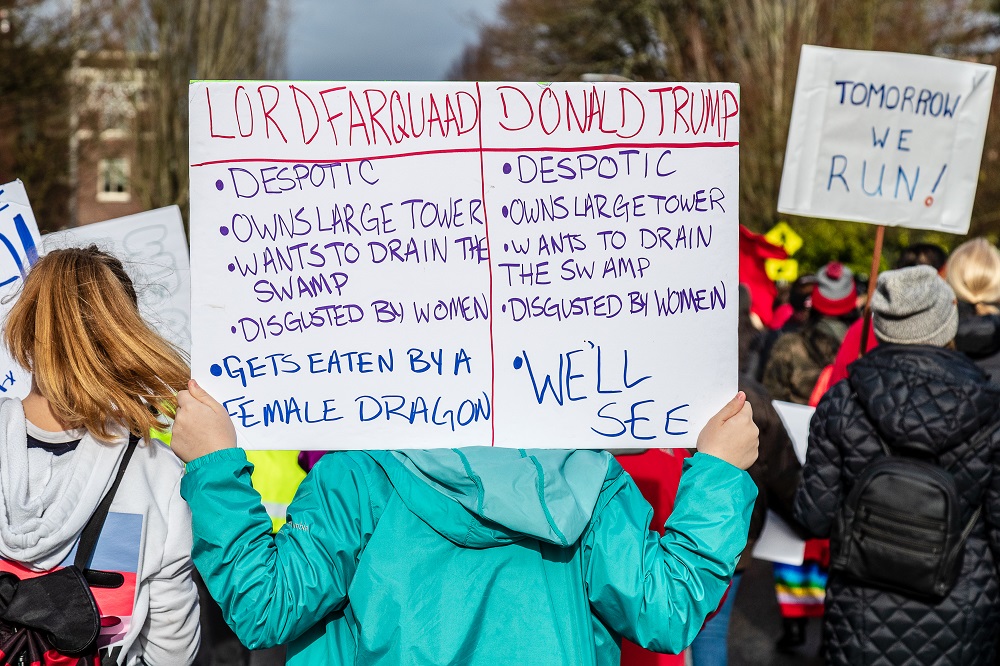 LORD FARQUAAD
•DESPOTIC
•OWNS LARGE TOWER
•WANTS TO DRAIN THE
SWAMP
•DISGUSTED BY WOMEN
•GETS EATEN BY A
FEMALE DRAGON
DONALD TRUMP
•DESPOTIC
•OWNS LARGE TOWER
•WANTS TO DRAIN
THE SWAMP
•DISGUSTED BY WOMEN
•WE'LL
SEE
TOMORROW
WE
RUN!